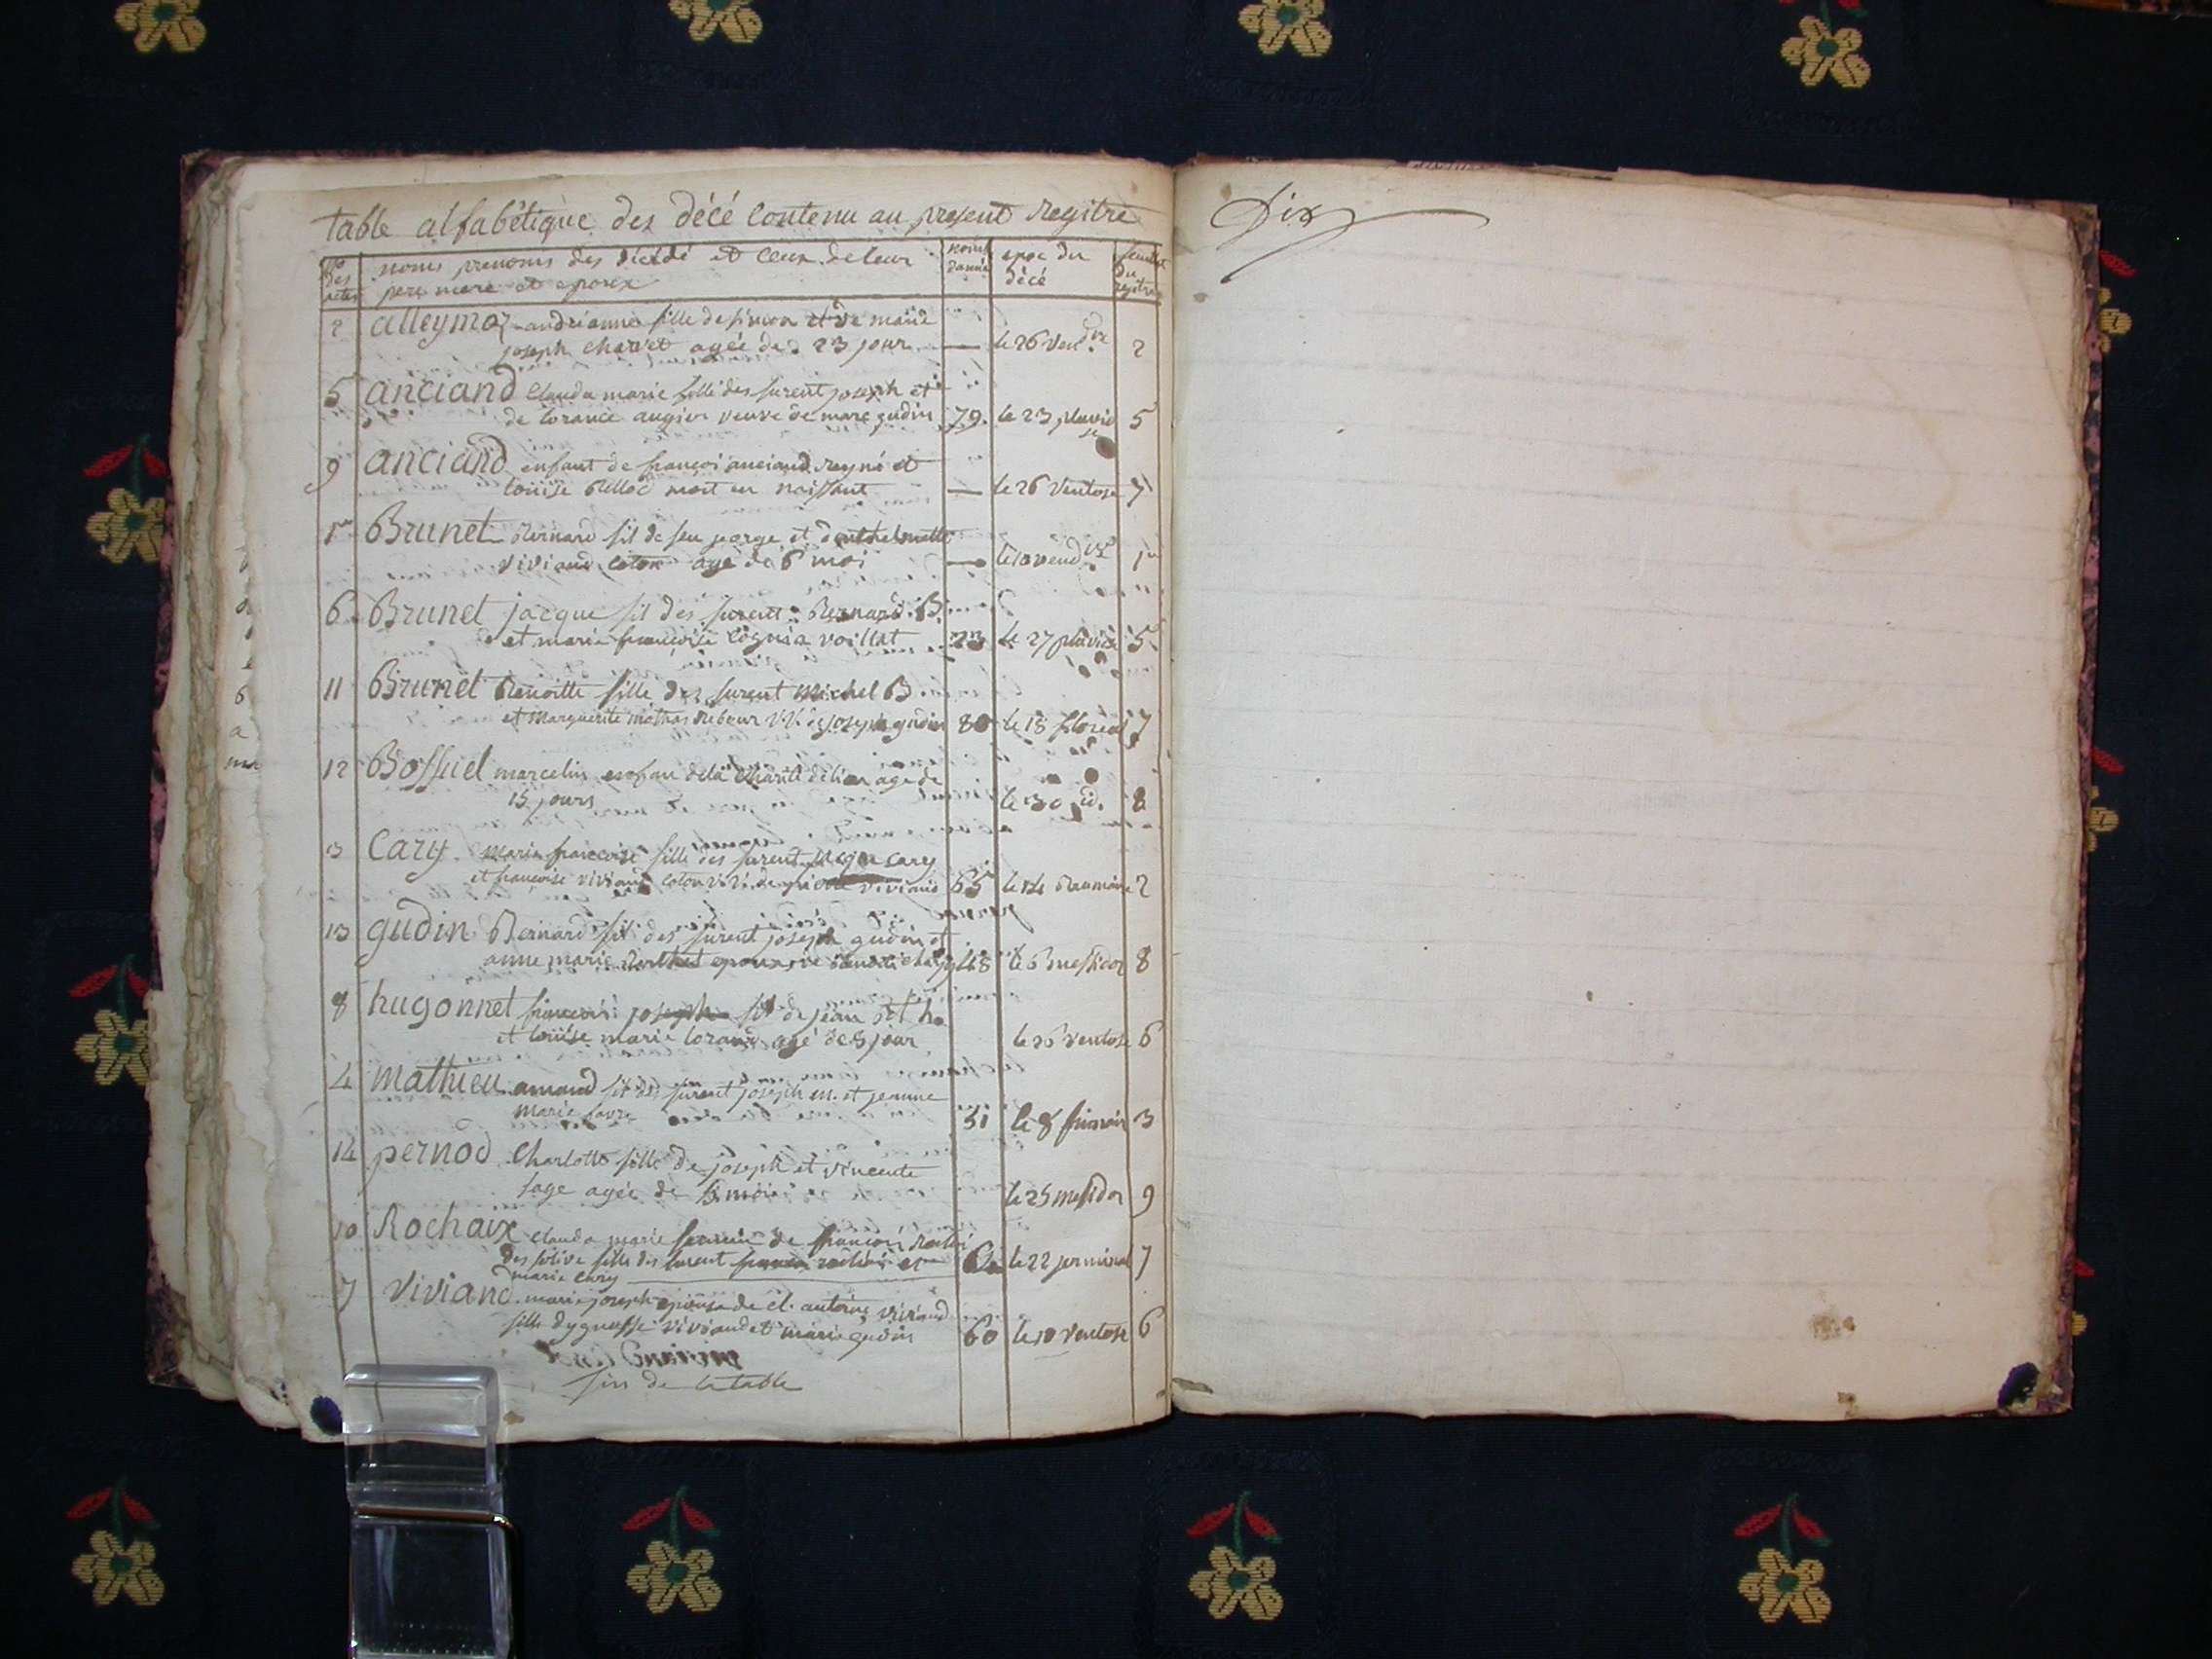 table alfabêtique des décé contenu au present regitre
No des actes
noms prenoms des décédé et ceux de leur
pere mere et epoux
epoc du
décé
feuillet
du
regitre
2 alleymoz andrianne fille de simon et de marie
joseph charvet agée de 23 jour — le 26 vend re 2
5 anciand clauda marie fille des furent joseph et
de lorance augier veuve de marc gudin 79. le 23 pluvio se 5
9 anciand enfant de françoi anciand reyné et
loüise Belloc mort en naissant — le 26 ventose 7
1er Brunet Bernard fil de feu jorge et
viviand coton agé de 6 moi — le 10 vend re 1er
6 Brunet jacque fil des furent Bernard B.
et marie françoise cognia voillat 23 le 27 pluviose 5
11 Brunet Benoitte fille des furent michel B.
et marguerite mathas v.ve de joseph gudin 80 le 18 floréal 7
12 Bossuel marcelin enfan de la charité de lion agé de
15 jours le 30 id. 8
3 Cary marie françoise fille des furent cary
et francoise viviand coton viviand 65 le 14 Brumaire 2
13 gudin Bernard fil des furent joseph gudin et
anne marie Berthet 48 le 6 messidor 8
8 hugonnet françoi joseph fil de jean h.
et loüise marie lorand agé de 8 jour le 26 ventose 6
4 mathieu amand fil des furent joseph m. et jeanne
marie favre 51 le 8 frimair 3
14 pernod charlotte fille de joseph et vincente
sage agée de moi le 25 messidor 9
10 Rochaix clauda marie femme de françoi
des solive fille des furent et
marie cary le 22 jerminal 7
7 viviand marie joseph epouse de cl. antoine viviand
fille viviand et marie gudin 60 le 10 ventose 6
fin de la table
Dix